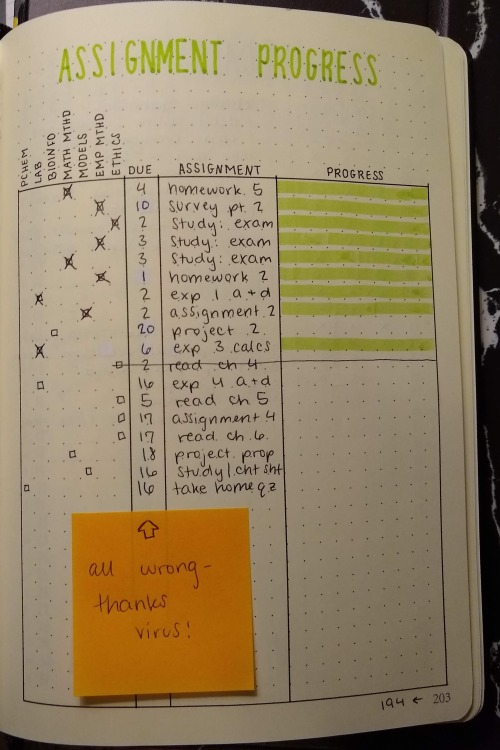 ASSIGNMENT PROGRESS
PCHEM
LAB
BIOINFO
MATH MTHD
MODELS
EMP MTHD
ETHICS
DUE ASSIGNMENT PROGRESS
4 homework 5
10 survey pt. 2
2 study: exam
3 study: exam
3 study: exam
1 homework 2
2 exp 1 a+d
2 assignment 2
20 project 2
6 exp 3 calcs
2 read ch 4
16 exp 4 a+d
5 read ch 5
17 assignment 4
17 read ch. 6
18 project prop
16 study/cht sht
16 take home qz
all wrong-
thanks
virus!
194 ← 203